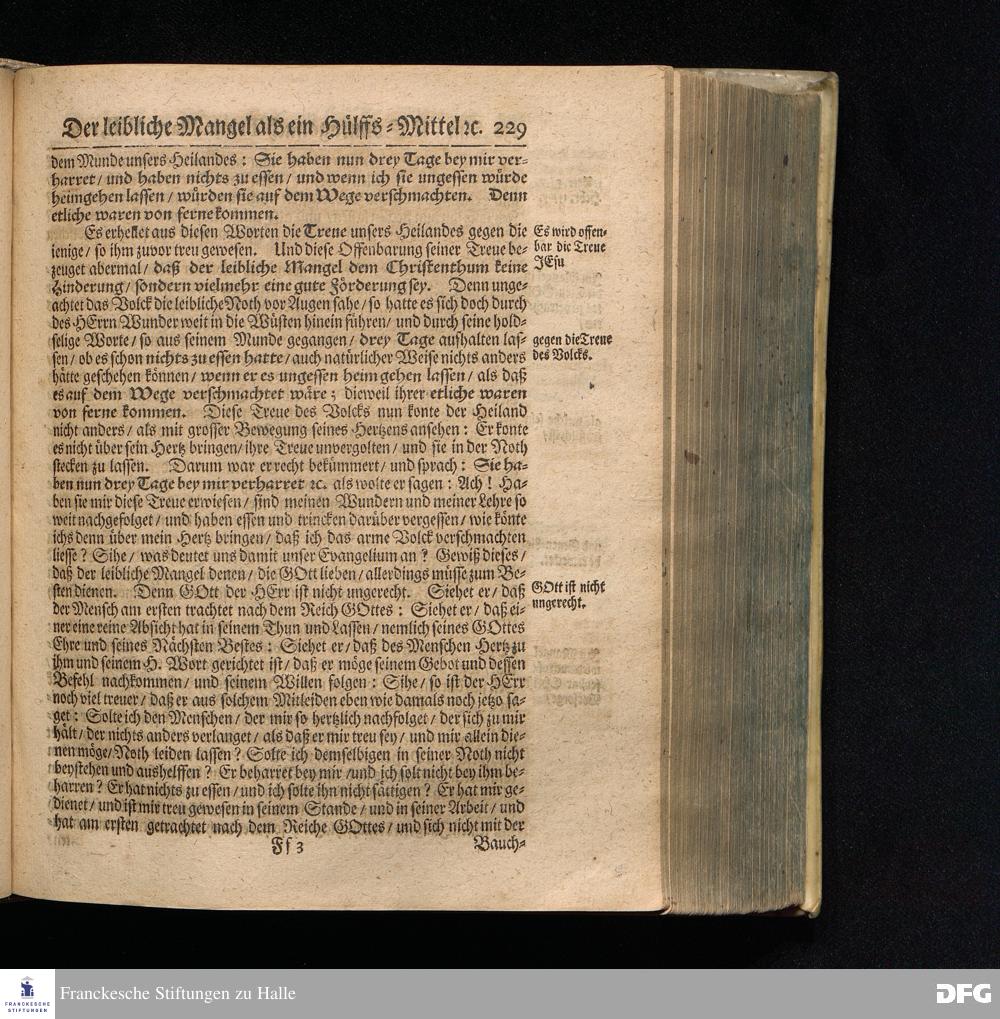 Der leibliche Mangel als ein Hülffs-Mittel ꝛc. 229
dem Munde unsers Heilandes: Sie haben nun drey Tage bey mir ver-
harret/ und haben nichts zu essen/ und wenn ich sie ungessen würde
heimgehen lassen/ würden sie auf dem Wege verschmachten. Denn
etliche waren von ferne kommen.
Es erhellet aus diesen Worten die Treue unsers Heilandes gegen die
jenige/ so ihm zuvor treu gewesen. Und diese Offenbarung seiner Treue be-
zeuget abermal/ daß der leibliche Mangel dem Christenthum keine
Hinderung/ sondern vielmehr eine gute Förderung sey. Denn unge-
achtet das Volck die leibliche Noth vor Augen sahe/ so hatte es sich doch durch
des HErrn Wunder weit in die Wüsten hinein führen/ und durch seine hold-
selige Worte/ so aus seinem Munde gegangen/ drey Tage aushalten las-
sen/ ob es schon nichts zu essen hatte/ auch natürlicher Weise nichts anders
hätte geschehen können/ wenn er es ungessen heim gehen lassen/ als daß
es auf dem Wege verschmachtet wäre; dieweil ihrer etliche waren
von ferne kommen. Diese Treue des Volcks nun konte der Heiland
nicht anders/ als mit grosser Bewegung seines Hertzens ansehen: Er konte
es nicht über sein Hertz bringen/ ihre Treue unvergolten/ und sie in der Noth
stecken zu lassen. Darum war er recht bekümmert/ und sprach: Sie ha-
ben nun drey Tage bey mir verharret ꝛc. als wolte er sagen: Ach! Ha-
ben sie mir diese Treue erwiesen/ sind meinen Wundern und meiner Lehre so
weit nachgefolget/ und haben essen und trincken darüber vergessen/ wie könte
ichs denn über mein Hertz bringen/ daß ich das arme Volck verschmachten
liesse? Sihe/ was deutet uns damit unser Evangelium an? Gewiß dieses/
daß der leibliche Mangel denen/ die GOtt lieben/ allerdings müsse zum Be-
sten dienen. Denn GOtt der HErr ist nicht ungerecht. Siehet er/ daß
der Mensch am ersten trachtet nach dem Reich GOttes: Siehet er/ daß ei-
ner eine reine Absicht hat in seinem Thun und Lassen/ nemlich seines GOttes
Ehre und seines Nächsten Bestes: Siehet er/ daß des Menschen Hertz zu
ihm und seinem H. Wort gerichtet ist/ daß er möge seinem Gebot und dessen
Befehl nachkommen/ und seinem Willen folgen: Sihe/ so ist der HErr
noch viel treuer/ daß er aus solchem Mitleiden eben wie damals noch jetzo sa-
get: Solte ich den Menschen/ der mir so hertzlich nachfolget/ der sich zu mir
hält/ der nichts anders verlanget/ als daß er mir treu sey/ und mir allein die-
nen möge/ Noth leiden lassen? Solte ich demselbigen in seiner Noth nicht
beystehen und aushelffen? Er beharret bey mir/ und ich solt nicht bey ihm be-
harren? Er hat nichts zu essen/ und ich solte ihn nicht sättigen? Er hat mir ge-
dienet/ und ist mir treu gewesen in seinem Stande/ und in seiner Arbeit/ und
hat am ersten getrachtet nach dem Reiche GOttes/ und sich nicht mit der
Ff 3
Bauch-
Es wird offen-
bar die Treue
JEsu
gegen die Treue
des Volcks.
GOtt ist nicht
ungerecht.
FRANCKESCHE
STIFTUNGEN
Franckesche Stiftungen zu Halle
DFG